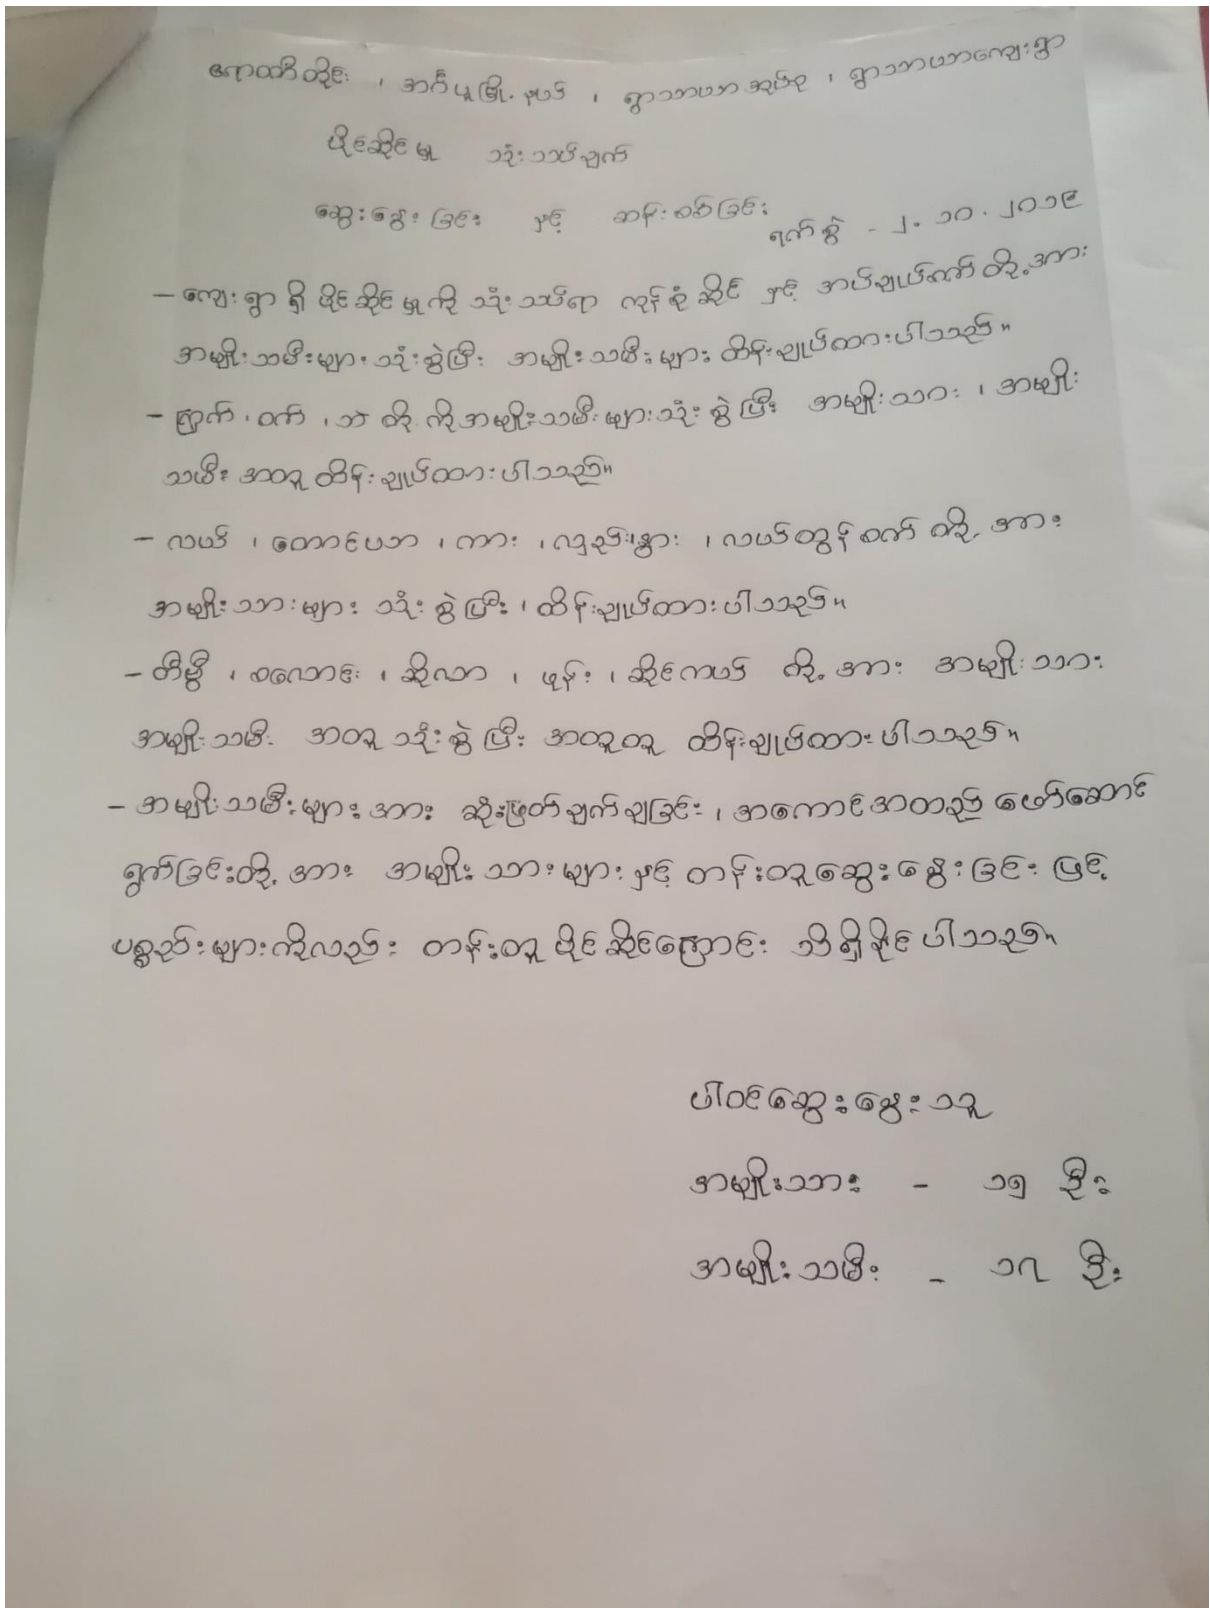 ဧရာဝတီတိုင်း ၊ အင်္ဂပူမြို့နယ် ၊ ရွာသာယာအုပ်စု ၊ ရွာသာယာကျေးရွာ
ပိုင်ဆိုင်မှု သုံးသပ်ချက်
ဆွေးနွေးခြင်း နှင့် ဆန်းစစ်ခြင်း
ရက်စွဲ - ၂.၁၀.၂၀၁၉
- ကျေးရွာရှိ ပိုင်ဆိုင်မှုကို သုံးသပ်ရာ ကုန်စုံဆိုင် နှင့် အပ်ချုပ်စက်တို့အား
အမျိုးသမီးများသုံးစွဲပြီး အမျိုးသမီးများ ထိန်းချုပ်ထားပါသည်။
- ကြက် ၊ ဝက် ၊ ဘဲ တို့ကို အမျိုးသမီးများသုံးစွဲပြီး အမျိုးသား ၊ အမျိုး
သမီး အတူ ထိန်းချုပ်ထားပါသည်။
- လယ် ၊ တောင်ယာ ၊ ကား ၊ လှည်း၊နွား ၊ လယ်ထွန်စက် တို့အား
အမျိုးသားများ သုံးစွဲပြီး ၊ ထိန်းချုပ်ထားပါသည်။
- တီဗွီ ၊ စလောင်း ၊ ဆိုလာ ၊ ဖုန်း ၊ ဆိုင်ကယ် တို့အား အမျိုးသား
အမျိုးသမီး အတူသုံးစွဲပြီး အတူတူ ထိန်းချုပ်ထားပါသည်။
- အမျိုးသမီးများအား ဆုံးဖြတ်ချက်ချခြင်း ၊ အကောင်အထည်ဖော်ဆောင်
ရွက်ခြင်းတို့အား အမျိုးသားများနှင့် တန်းတူဆွေးနွေးခြင်းဖြင့်
ပစ္စည်းများကိုလည်း တန်းတူ ပိုင်ဆိုင်ကြောင်း သိရှိနိုင်ပါသည်။
ပါဝင်ဆွေးနွေးသူ
အမျိုးသား - ၁၅ ဦး
အမျိုးသမီး - ၁၇ ဦး